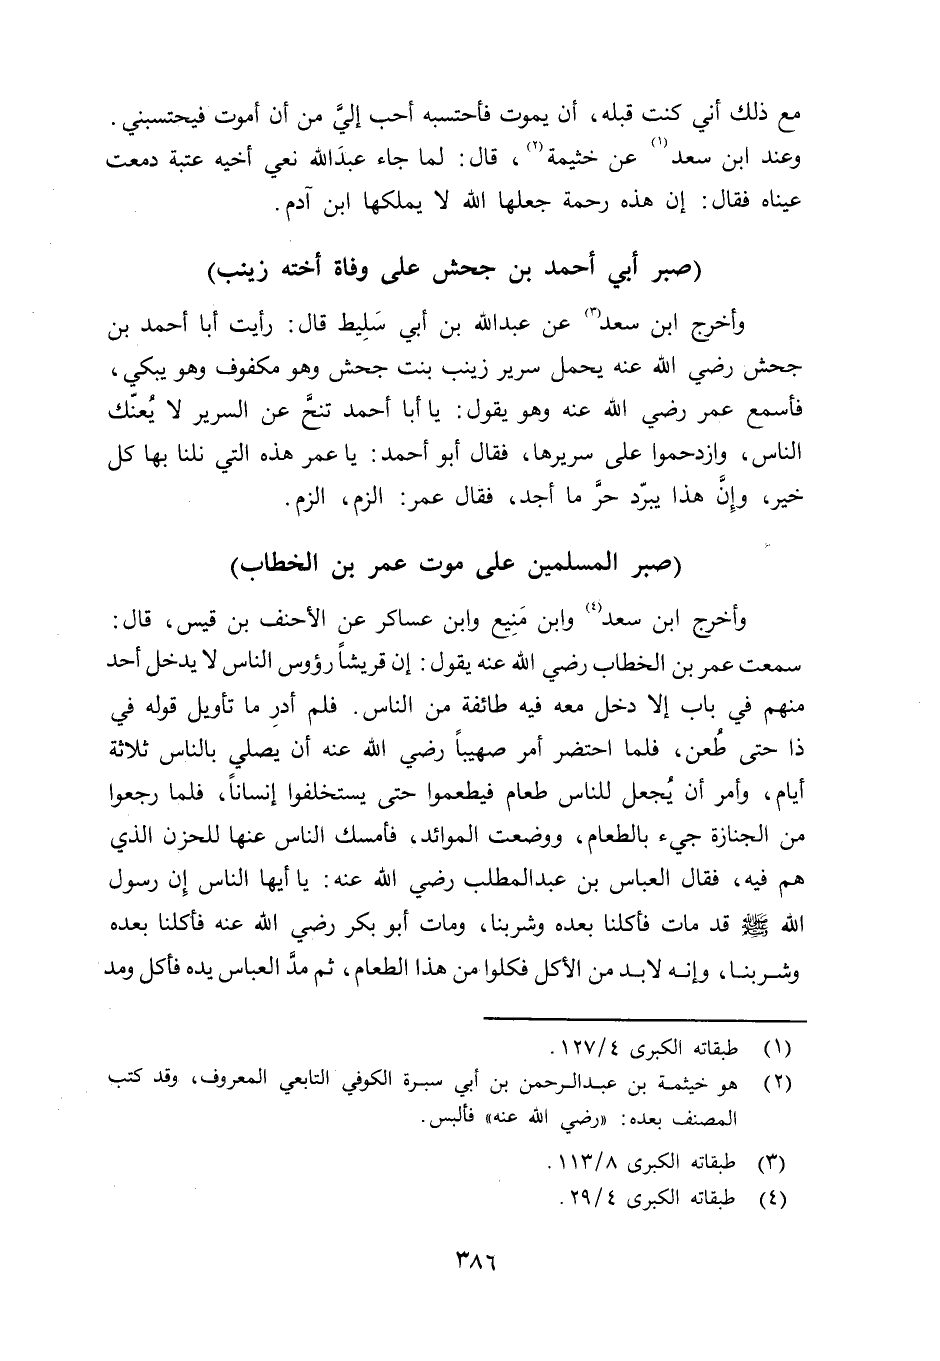 مع ذلك أني كنت قبله، أن يموت فأحتسبه أحب إليَّ من أن أموت فيحتسبني.
وعند ابن سعد(١) عن خثيمة(٢)، قال: لما جاء عبدَالله نعي أخيه عتبة دمعت
عيناه فقال: إن هذه رحمة جعلها الله لا يملكها ابن آدم.
(صبر أبي أحمد بن جحش على وفاة أخته زينب)
وأخرج ابن سعد(٣) عن عبدالله بن أبي سَلِيط قال: رأيت أبا أحمد بن
جحش رضي الله عنه يحمل سرير زينب بنت جحش وهو مكفوف وهو يبكي،
فأسمع عمر رضي الله عنه وهو يقول: يا أبا أحمد تنحَّ عن السرير لا يُعنّك
الناس، وازدحموا على سريرها، فقال أبو أحمد: يا عمر هذه التي نلنا بها كل
خير، وإنَّ هذا يبرّد حرَّ ما أجد، فقال عمر: الزم، الزم.
(صبر المسلمين على موت عمر بن الخطاب)
وأخرج ابن سعد(٤) وابن مَنِيع وابن عساكر عن الأحنف بن قيس، قال:
سمعت عمر بن الخطاب رضي الله عنه يقول: إن قريشاً رؤوس الناس لا يدخل أحد
منهم في باب إلا دخل معه فيه طائفة من الناس. فلم أدرِ ما تأويل قوله في
ذا حتى طُعن، فلما احتضر أمر صهيباً رضي الله عنه أن يصلي بالناس ثلاثة
أيام، وأمر أن يُجعل للناس طعام فيطعموا حتى يستخلفوا إنساناً، فلما رجعوا
من الجنازة جيء بالطعام، ووضعت الموائد، فأمسك الناس عنها للحزن الذي
هم فيه، فقال العباس بن عبدالمطلب رضي الله عنه: يا أيها الناس إن رسول
الله ﷺ قد مات فأكلنا بعده وشربنا، ومات أبو بكر رضي الله عنه فأكلنا بعده
وشربنا، وإنه لابد من الأكل فكلوا من هذا الطعام، ثم مدَّ العباس يده فأكل ومد
(١) طبقاته الكبرى ٤/١٢٧.
(٢) هو خيثمة بن عبدالرحمن بن أبي سبرة الكوفي التابعي المعروف، وقد كتب
المصنف بعده: «رضي الله عنه» فألبس.
(٣) طبقاته الكبرى ٨/١١٣.
(٤) طبقاته الكبرى ٤/٢٩.
٣٨٦